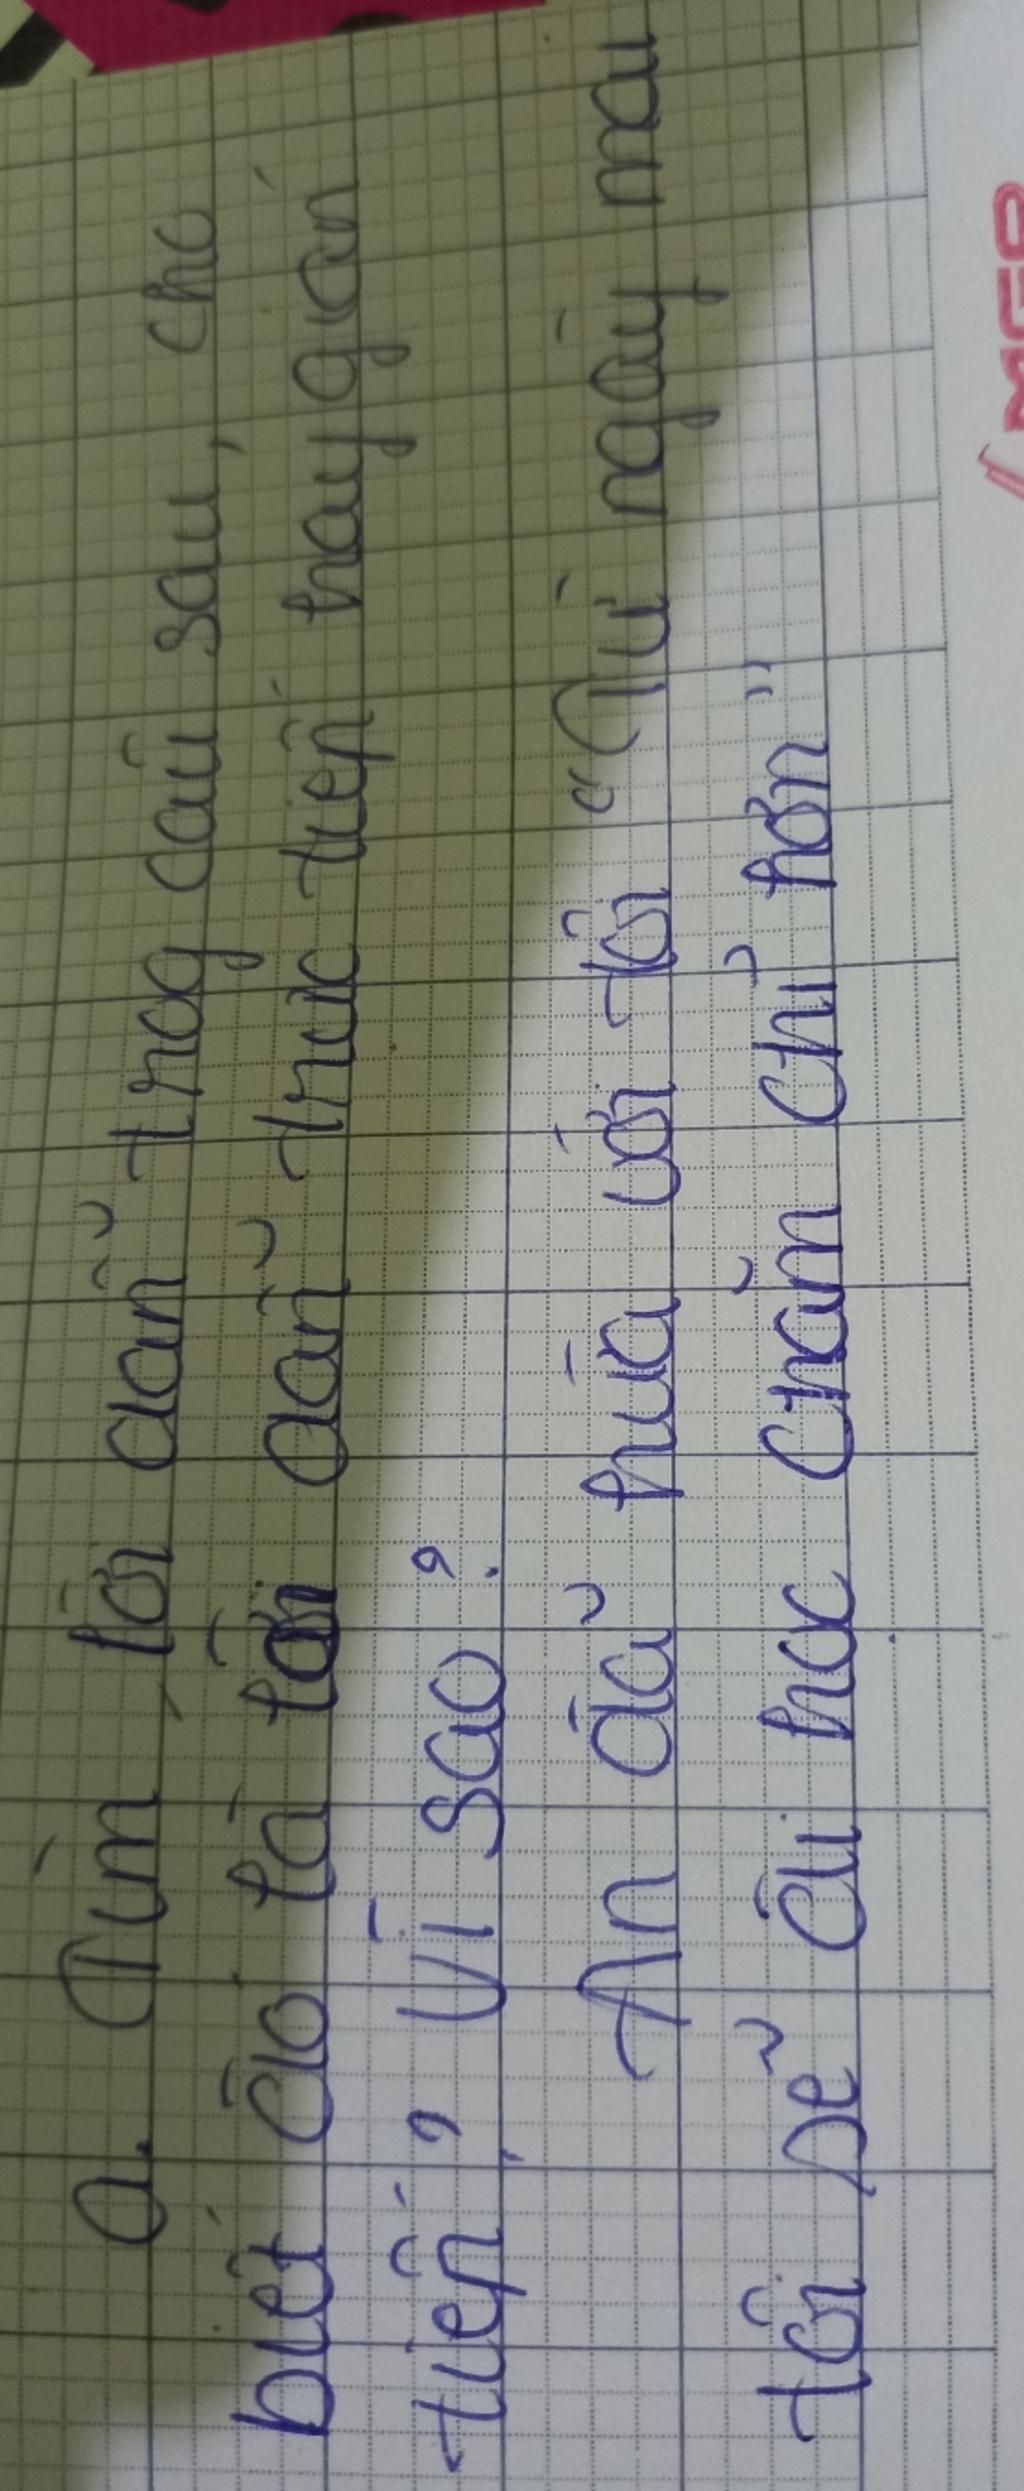 a. Tìm lời dẫn trog câu sau, cho
biết đó là lời dẫn trực tiếp hay gián
tiếp, Vì sao?
An đã hứa với tôi "Từ ngày mai
tôi sẽ đi học chăm chỉ hơn"